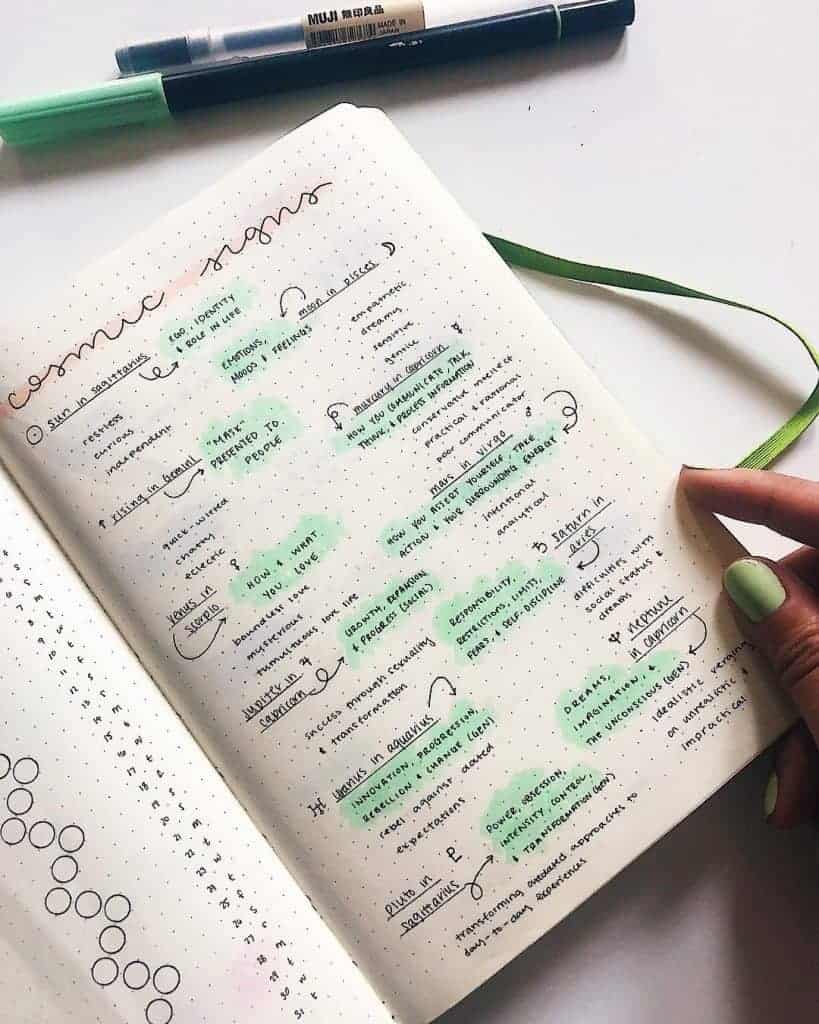 MUJI 無印良品
MADE IN
JAPAN
cosmic signs
sun in sagittarius
EGO, IDENTITY
& ROLE IN LIFE
restless
curious
independent
moon in pisces
EMOTIONS,
MOODS & FEELINGS
empathetic
dreamy
sensitive
gentle
rising in gemini
"MASK"
PRESENTED TO
PEOPLE
quick-witted
chatty
eclectic
mercury in capricorn
HOW YOU COMMUNICATE, TALK,
THINK, & PROCESS INFORMATION
conservative intellect
practical & rational
poor communicator
venus in
scorpio
HOW & WHAT
YOU LOVE
boundless love
mysterious
tumultuous love life
mars in virgo
HOW YOU ASSERT YOURSELF, TAKE
ACTION & YOUR SURROUNDING ENERGY
intentional
analytical
jupiter in
capricorn
GROWTH, EXPANSION
& PROGRESS (SOCIAL)
success through sexuality
& transformation
saturn in
aries
RESPONSIBILITY,
RESTRICTIONS, LIMITS,
FEARS, & SELF-DISCIPLINE
difficulties with
social status &
dreams
uranus in aquarius
INNOVATION, PROGRESSION,
REBELLION, & CHANGE (GEN)
rebel against dated
expectations
neptune
in capricorn
DREAMS,
IMAGINATION, &
THE UNCONSCIOUS (GEN)
idealistic verging
on unrealistic &
impractical
pluto in
sagittarius
POWER, OBSESSION,
INTENSITY, CONTROL,
& TRANSFORMATION (GEN)
transforming outdated approaches to
day-to-day experiences
7 m
8 t
9 w
10 t
11 f
12 s
13 s
14 m
15 t
16 w
17 t
18 f
19 s
20 s
21 m
22 t
23 w
24 t
25 f
26 s
27 s
28 m
29 t
30 w
31 t